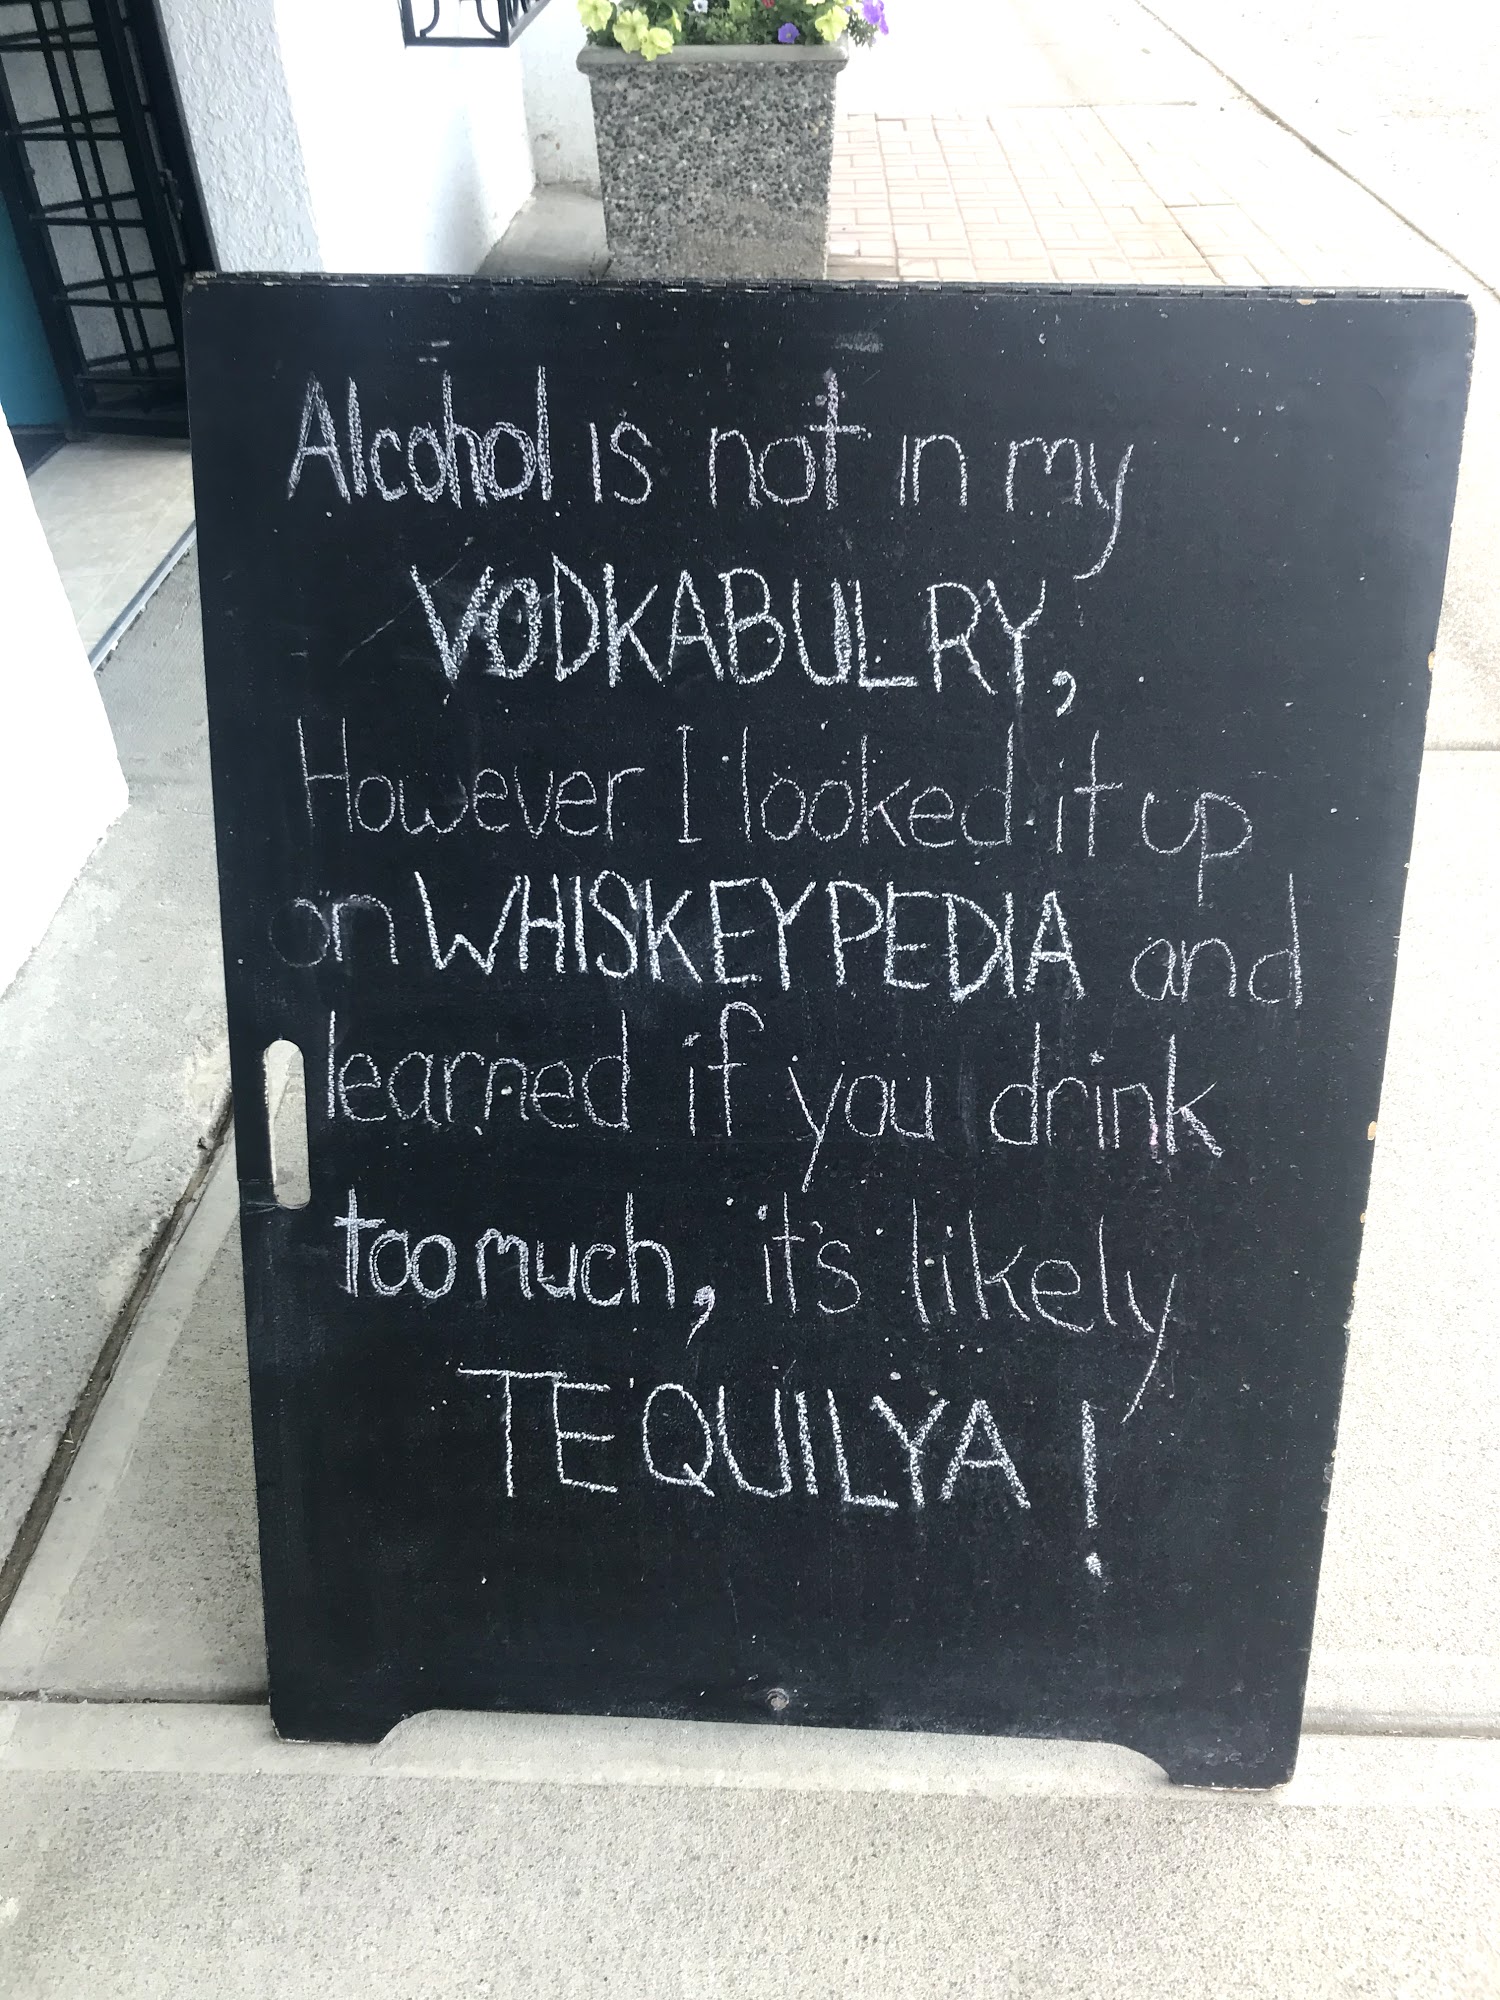 Alcohol is not in my
VODKABULRY,
However I looked it up
on WHISKEYPEDIA and
learned if you drink
too much, it's likely
TEQUILYA!